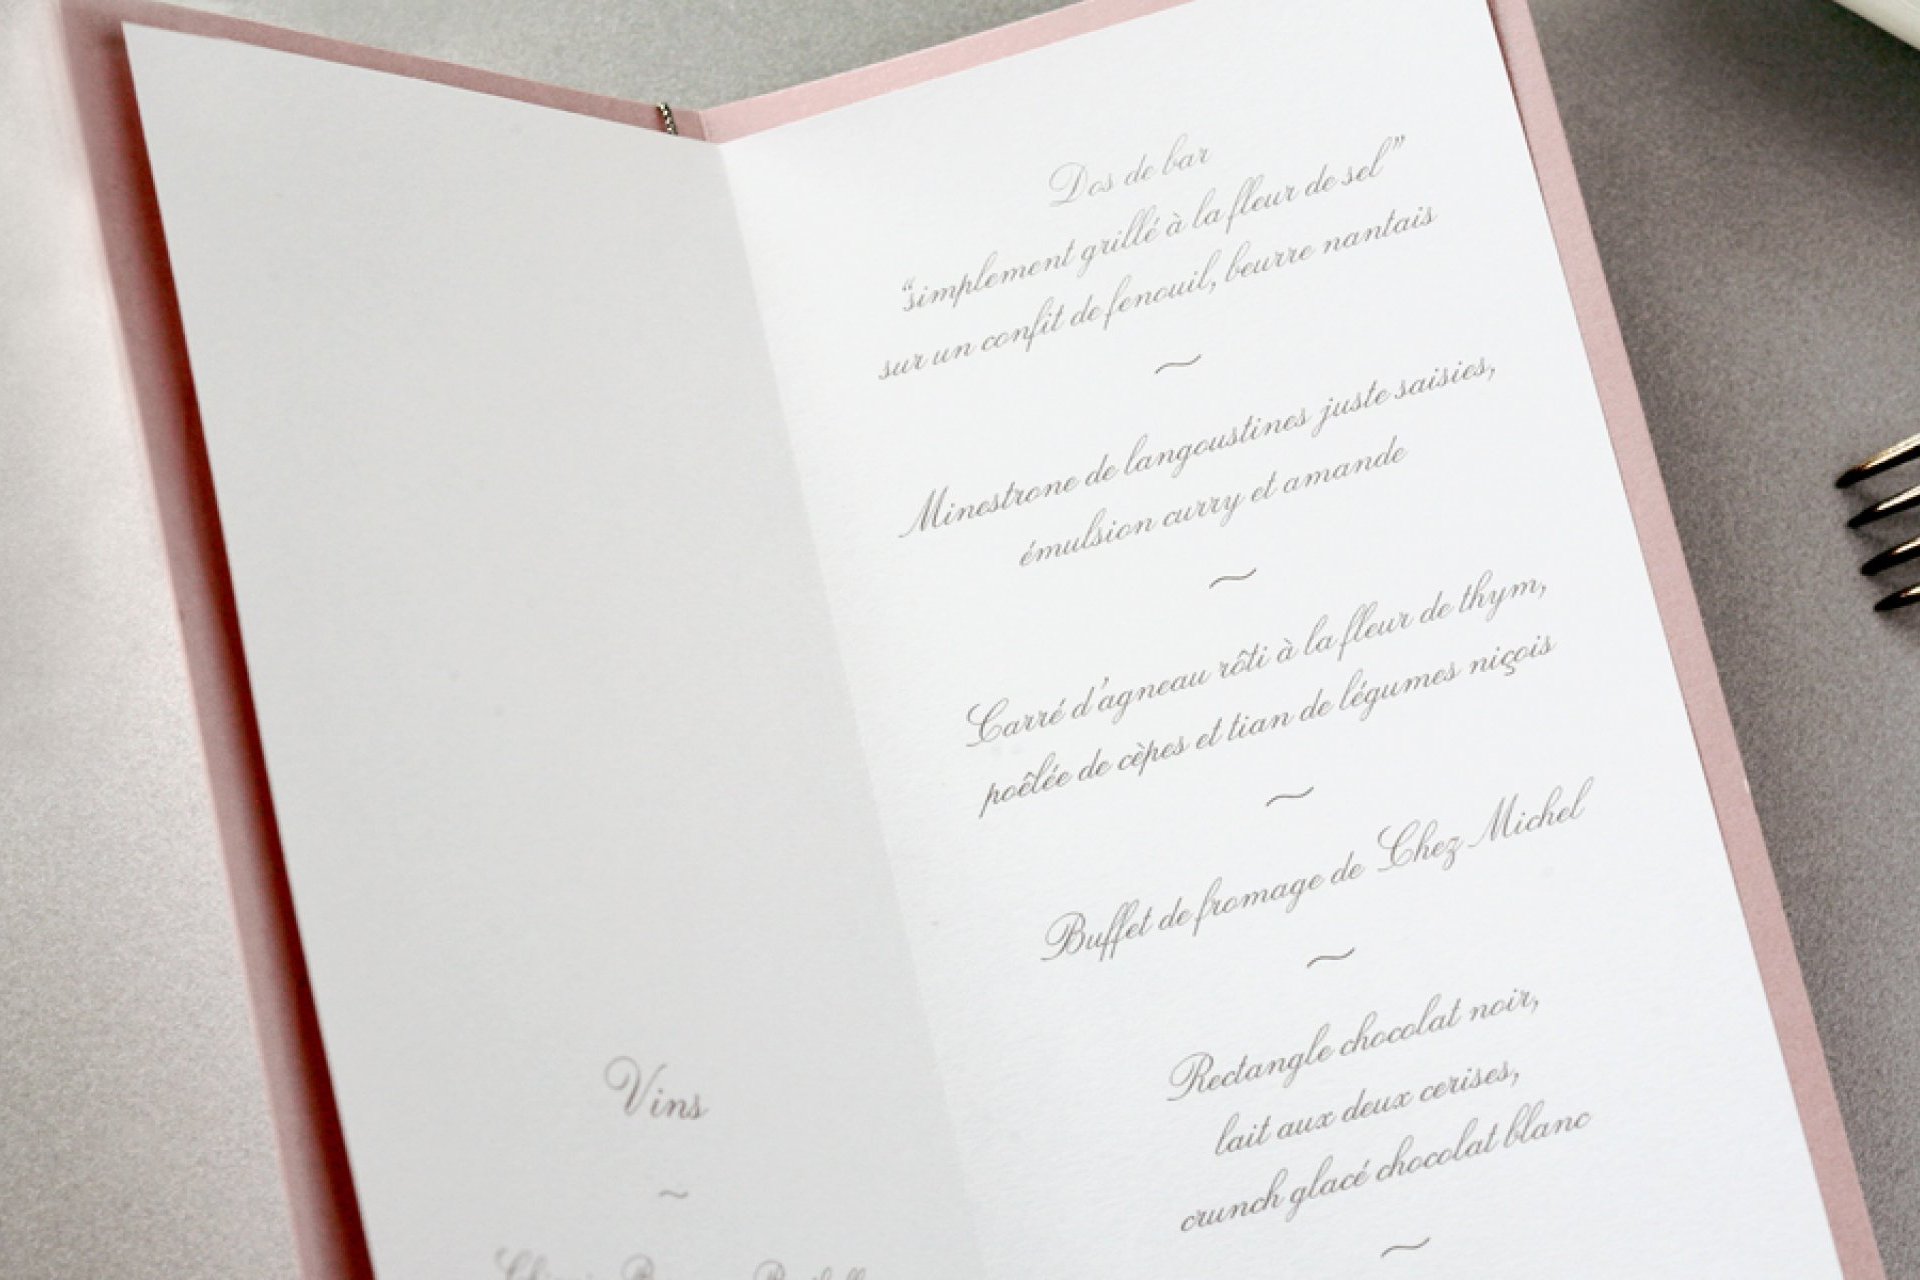 Vins
~
Dos de bar
“simplement grillé à la fleur de sel”
sur un confit de fenouil, beurre nantais
~
Minestrone de langoustines juste saisies,
émulsion curry et amande
~
Carré d'agneau rôti à la fleur de thym,
poêlée de cèpes et tian de légumes niçois
~
Buffet de fromage de Chez Michel
~
Rectangle chocolat noir,
lait aux deux cerises,
crunch glacé chocolat blanc
~